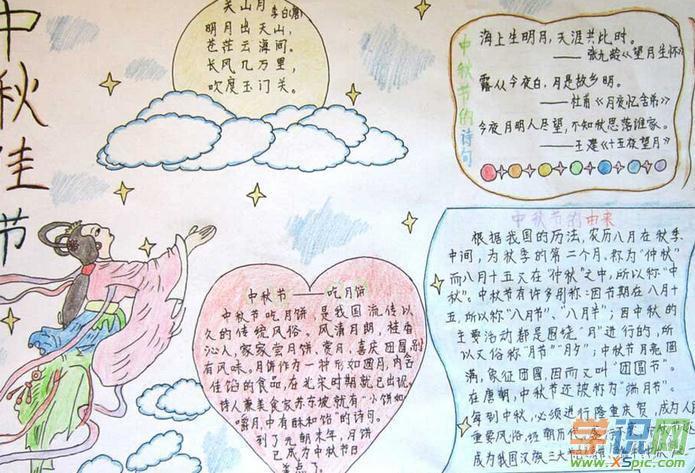 中秋佳节
关山月
李白(唐)
明月出天山,
苍茫云海间。
长风几万里,
吹度玉门关。
中秋节的诗句
海上生明月,天涯共此时。
——张九龄《望月怀
露从今夜白,月是故乡明。
——杜甫《月夜忆舍弟》
今夜月明人尽望,不知秋思落谁家。
——王建《十五夜望月》
中秋节——吃月饼
中秋节吃月饼,是我国流传以
久的传统风俗。风清月朗,桂香
沁人,家家尝月饼、赏月,喜庆团圆,别
有风味。月饼作为一种形如圆月,内含
佳馅的食品,在北宋时期就已出现。
诗人兼美食家苏东坡就有"小饼如
嚼月,中有酥和饴"的诗句。
到了元朝末年,月饼
已成为中秋节
中秋节的由来
根据我国的历法,农历八月在秋季
中间,为秋季的第二个月,称为"仲秋"
而八月十五又在"仲秋"之中,所以称"中
秋"。中秋节有许多别称:因节期在八月十
五,所以称"八月节"、"八月半";因中秋的
主要活动都是围绕"月"进行的,所
以又俗称"月节""月夕";中秋节月亮圆
满,象征团圆,因而又叫"团圆节"。
在唐朝,中秋节还被称为"端月节"。
每到中秋,必须进行隆重庆贺,成为人
重要风俗,经朝历代,盛行
成为我国汉族三大
学识网
xspic.com